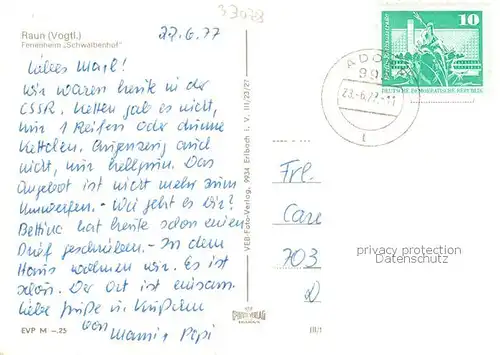 33023
Raun (Vogtl.)
Ferienheim „Schwalbenhof"
22.6.77
Liebes Mausl!
Wir waren heute in der
CSSR. Ketten gab es nicht,
nur 1 Reifen oder dünne
Kettchen. auch
nicht, nur hellgrün. Das
Angebot ist nicht mehr zum
umwerfen. - Wie geht es Dir?
Bettina hat heute schon einen
Brief geschrieben. - In dem
Haus wohnen wir. Es ist
schön. Der Ort ist einsam.
Liebe Grüße u. Küßchen
von Mami + Papi
EVP M –,25
VEB Foto-Verlag, 9934 Erlbach i. V. III/23/27
10
DEUTSCHE DEMOKRATISCHE REPUBLIK
23.-6.77-11
Frl.
703
privacy protection
Datenschutz